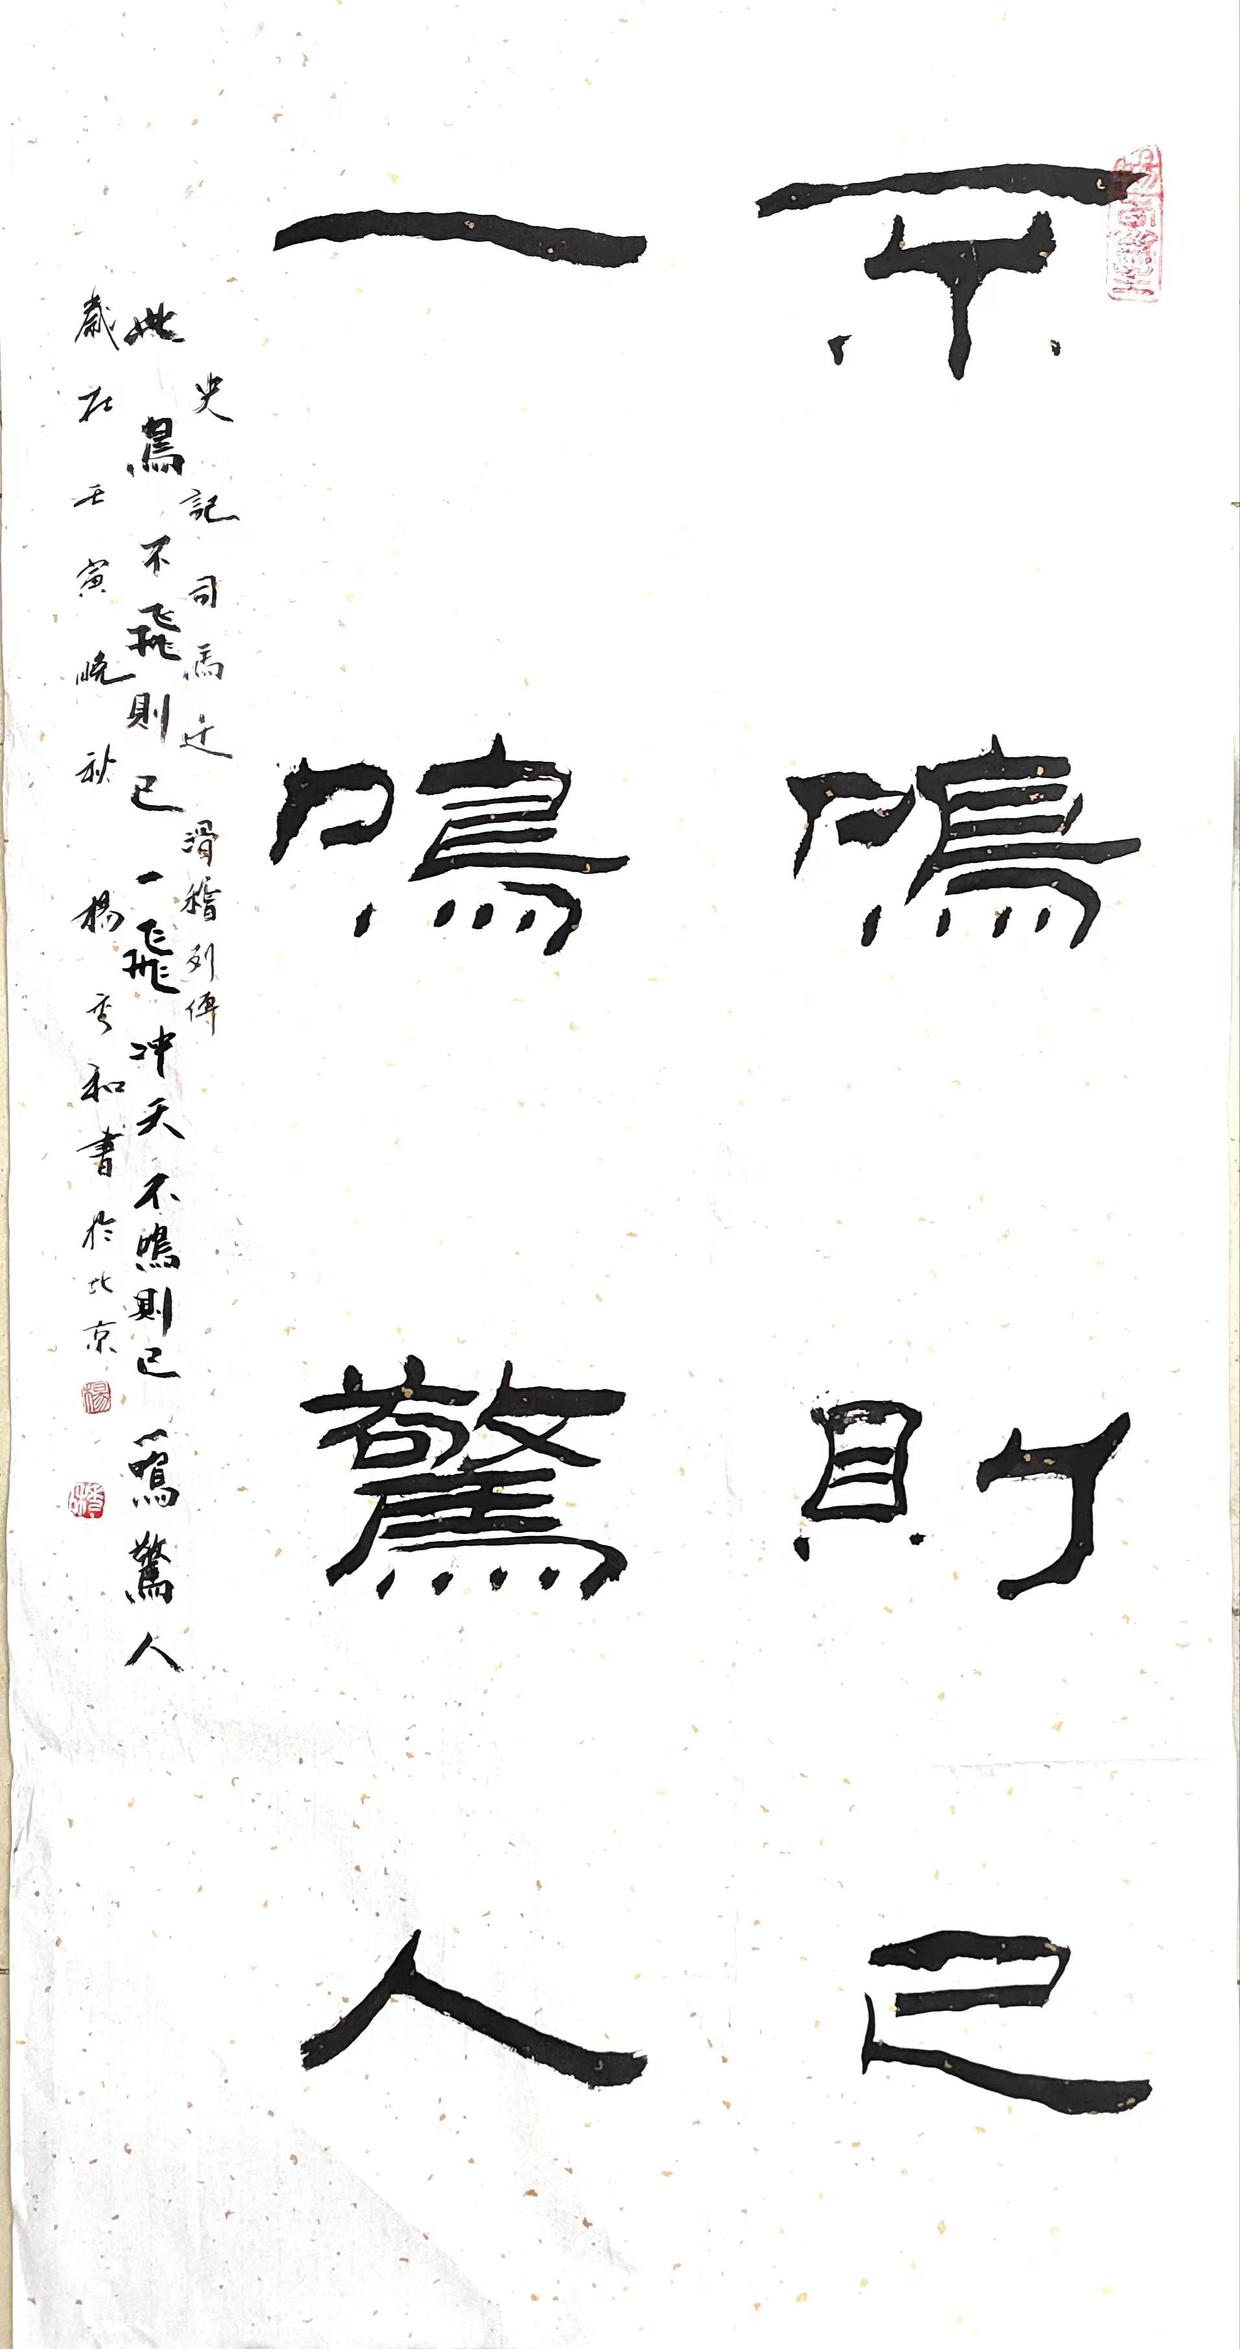 不鳴則已
一鳴驚人
史記司馬迁滑稽列傳
此鳥不飛則已一飛冲天不鳴則已一鳴驚人
歲在壬寅晚秋楊秀和書於北京